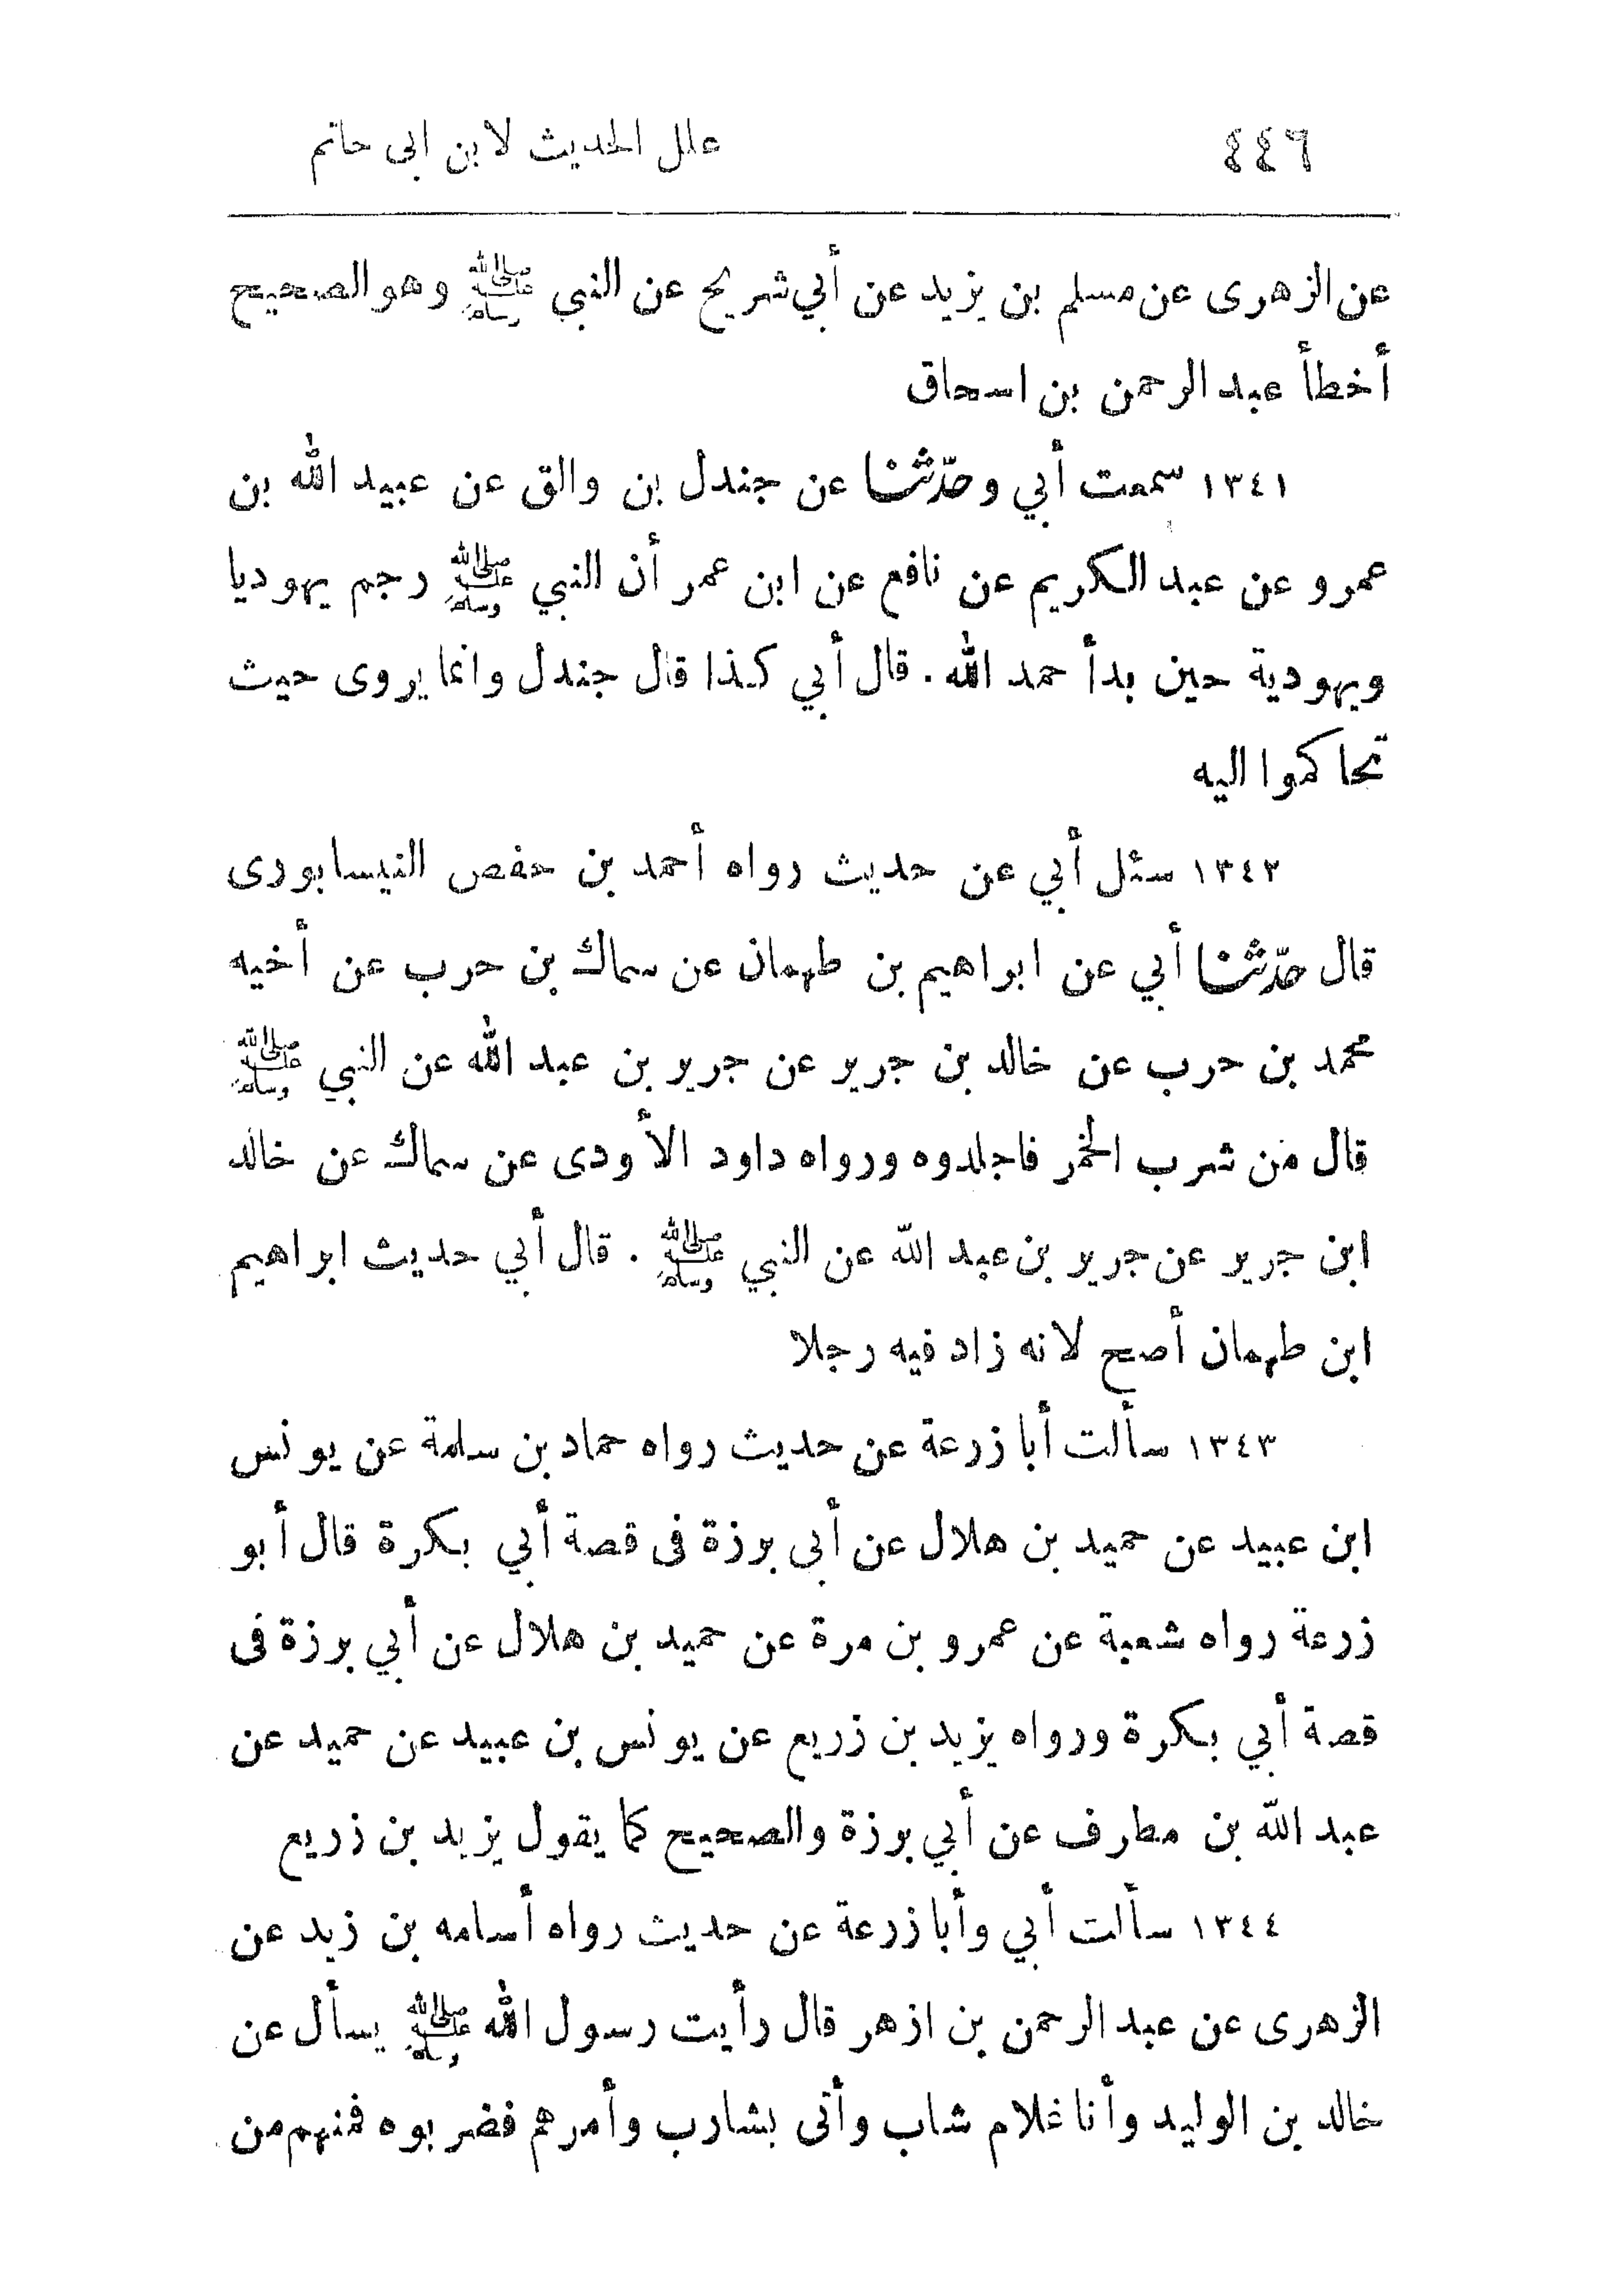 ٤٤٦ علل الحديث لابن ابى حاتم
عن الزهرى عن مسلم بن يزيد عن أبي شريح عن النبي ﷺ وهو الصحيح
أخطأ عبد الرحمن بن اسحاق
١٣٤١ سمعت أبي وحدّثنا عن جندل بن والق عن عبيد الله بن
عمرو عن عبد الكريم عن نافع عن ابن عمر أن النبي ﷺ رجم يهوديا
ويهودية حين بدأ حمد الله. قال أبي كذا قال جندل وانما يروى حيث
تحاكموا اليه
١٣٤٢ سئل أبي عن حديث رواه أحمد بن حفص النيسابورى
قال حدّثنا أبي عن ابراهيم بن طهمان عن سماك بن حرب عن أخيه
محمد بن حرب عن خالد بن جرير عن جرير بن عبد الله عن النبي ﷺ
قال من شرب الخمر فاجلدوه ورواه داود الأودى عن سماك عن خالد
ابن جرير عن جرير بن عبد الله عن النبي ﷺ. قال أبي حديث ابراهيم
ابن طهمان أصح لانه زاد فيه رجلا
١٣٤٣ سألت أبا زرعة عن حديث رواه حماد بن سلمة عن يونس
ابن عبيد عن حميد بن هلال عن أبي برزة فى قصة أبي بكرة قال أبو
زرعة رواه شعبة عن عمرو بن مرة عن حميد بن هلال عن أبي برزة فى
قصة أبي بكرة ورواه يزيد بن زريع عن يونس بن عبيد عن حميد عن
عبد الله بن مطرف عن أبي برزة والصحيح كما يقول يزيد بن زريع
١٣٤٤ سألت أبي وأبا زرعة عن حديث رواه أسامه بن زيد عن
الزهرى عن عبد الرحمن بن ازهر قال رأيت رسول الله ﷺ يسأل عن
خالد بن الوليد وأنا غلام شاب وأتى بشارب وأمرهم فضربوه فمنهم من